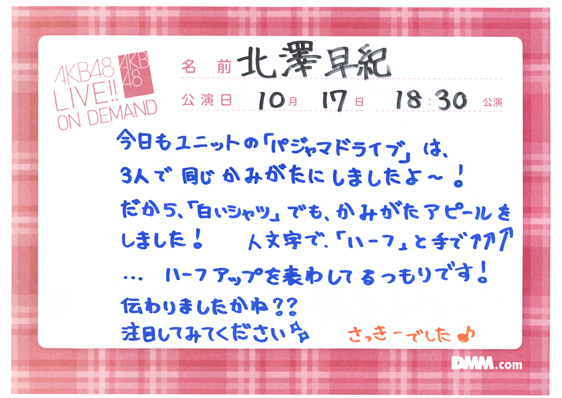 AKB48
LIVE!!
ON DEMAND
AKB
48
名 前 北澤早紀
公演日 10月 17日 18:30 公演
今日もユニットの「パジャマドライブ」は、
3人で同じかみがたにしましたよ〜！
だから、「白いシャツ」でも、かみがたアピールを
しました！ 人文字で、「ハーフ」と手で↑↑↑
... ハーフアップを表わしてるつもりです！
伝わりましたかね??
注目してみてください✨
さっきーでした♪
DMM.com